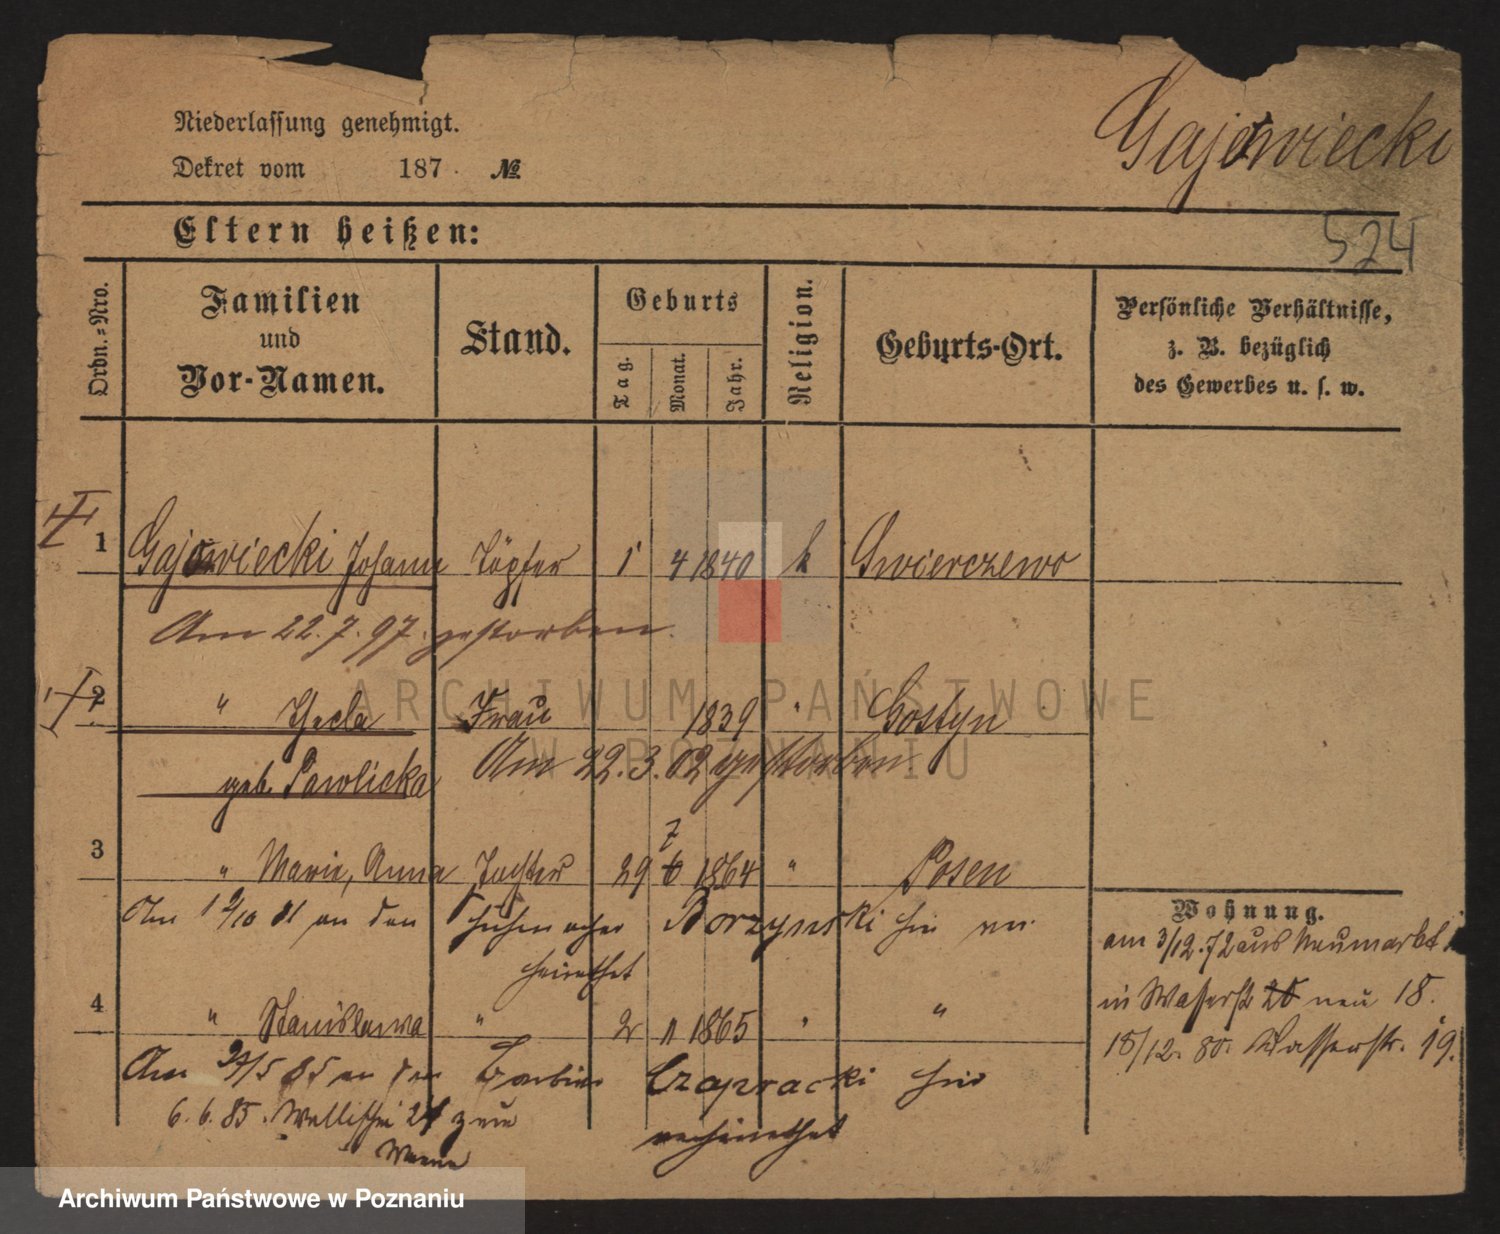 Niederlassung genehmigt.
Gajowiecki
Dekret vom 187 . №
Eltern heißen:
524
Ordn.=Nro.
Familien
und
Vor-Namen.
Stand.
Geburts
Tag.
Monat.
Jahr.
Religion.
Geburts-Ort.
Persönliche Verhältnisse,
z. B. bezüglich
des Gewerbes u. s. w.
1 Gajowiecki Johann Töpfer 1 4 1840 k Gwierczewo
Am 22.7.97. gestorben.
2 " Thecla Frau 1839 " Gostyn
geb. Pawlicka Am 22.3.02 gestorben
3 " Marie, Anna Tochter 29 7 1864 " Posen
Am /10 81 an den Schuhmacher Borzynski hier ver
heirathet
4 " Stanislawa " 2 11 1865 " "
Am /5 85 an den Czapracki hier
6.6.85. Wallischei 24 zum verheirathet
Wohnung.
am 3/12.72 aus Neumarkt
in Wasserst 20 neu 18.
18/12. 80. Wasserstr. 19.
ARCHIWUM PAŃSTWOWE
W POZNANIU
Archiwum Państwowe w Poznaniu